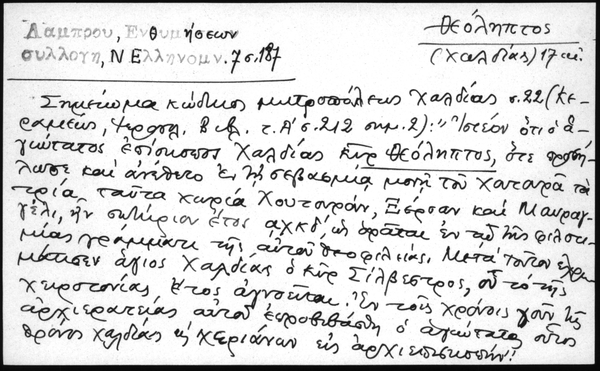 Λάμπρου, Ενθυμήσεων
συλλογη, Ν Ελληνομν. 7 σ. 187
Θεόληπτος
(Χαλδίας) 17 αι.
Σημείωμα κώδικος μητροπόλεως Χαλδίας σ. 22 (Κε-
ραμεύς, Ιεροσολ. Βιβ. τ. Α' σ. 212 σημ. 2): "Ἰστέον ὅτι ὁ ἁ-
γιώτατος ἐπίσκοπος Χαλδίας κῦρ Θεόληπτος, ὅτε προσή-
λωσε καὶ ἀνέθετο ἐν τῇ σεβασμίᾳ μονῇ τοῦ Χατουρᾶ τὰ
τρία ταῦτα χωρία Χουτουράν, καὶ Μαυραγ-
γέλι, ἦν σωτήριον ἔτος αχκδ', ὡς ὁρᾶται ἐν τῷ τῆς φιλοτι-
μίας γράμματι τῆς αὐτοῦ θεοφιλείας. Μετὰ τοῦτον ἐχρη-
μάτισεν ἅγιος Χαλδίας ὁ κῦρ Σίλβεστρος, οὗ τὸ τῆς
χειροτονίας ἔτος ἀγνοεῖται. Ἐν τοῖς χρόνοις γοῦν τῆς
ἀρχιερατείας αὐτοῦ ἐπροβιβάσθη ὁ ἁγιώτατος οὗτος
θρόνος Χαλδίας καὶ Χεριάνων εἰς ἀρχιεπισκοπήν!